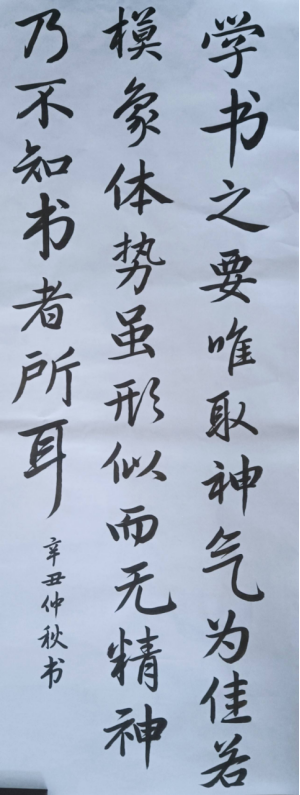 学书之要唯取神气为佳若
模象体势虽形似而无精神
乃不知书者所耳
辛丑仲秋书